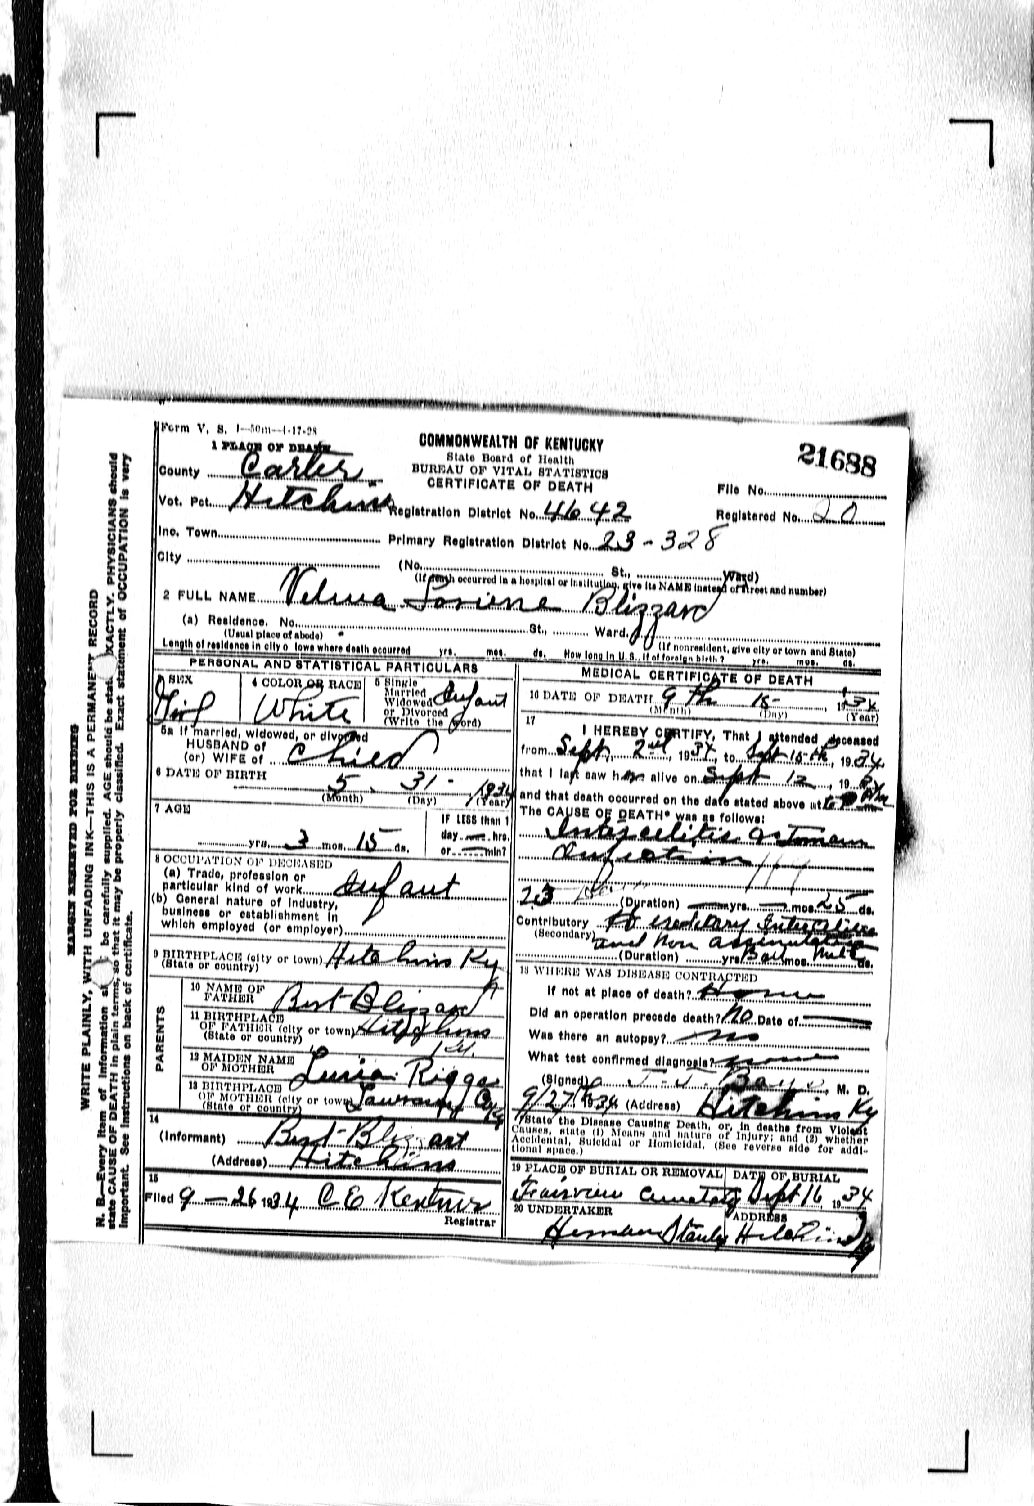 Form V. S. 1—50m—4-17-28
1 PLACE OF DEATH
COMMONWEALTH OF KENTUCKY
State Board of Health
BUREAU OF VITAL STATISTICS
CERTIFICATE OF DEATH
21688
County Carter
File No.
Vot. Pct. Hitchins Registration District No. 4642 Registered No. 20
Inc. Town Primary Registration District No. 23-328
City (No. St., Ward)
(If death occurred in a hospital or institution, give its NAME instead of street and number)
2 FULL NAME Velma Blizzard
(a) Residence. No. St., Ward.
(Usual place of abode) (If nonresident, give city or town and State)
Length of residence in city o town where death occurred yrs. mos. ds. How long in U. S., if of foreign birth? yrs. mos. ds.
PERSONAL AND STATISTICAL PARTICULARS
3 SEX Girl
4 COLOR OR RACE White
5 Single Married Widowed or Divorced (Write the word) Infant
5a If married, widowed, or divorced
HUSBAND of
(or) WIFE of Child
6 DATE OF BIRTH 5 31 - 1934
(Month) (Day) (Year)
7 AGE
yrs. 3 mos. 15 ds.
IF LESS than 1
day — hrs.
or min?
8 OCCUPATION OF DECEASED
(a) Trade, profession or
particular kind of work Infant
(b) General nature of industry,
business or establishment in
which employed (or employer)
9 BIRTHPLACE (city or town) Hitchins Ky
(State or country)
PARENTS
10 NAME OF FATHER Burt Blizzard
11 BIRTHPLACE OF FATHER (city or town) Hitchins
(State or country) Ky.
12 MAIDEN NAME OF MOTHER Riggs
13 BIRTHPLACE OF MOTHER (city or town) Co
(State or country) Ky
14
(Informant) Burt
(Address) Hitchins
15
Filed 9 — 26 1934 C E
Registrar
MEDICAL CERTIFICATE OF DEATH
16 DATE OF DEATH 9th 15 1934
(Month) (Day) (Year)
17
I HEREBY CERTIFY, That I attended deceased
from Sept, 2nd, 1934, to Sept 15th, 1934.
that I last saw her alive on Sept 12, 19
and that death occurred on the date stated above at
The CAUSE OF DEATH* was as follows:
(Duration) — yrs. — mos. 25 ds.
Contributory Hereditary
(Secondary) and Non
(Duration) yrs. mos. ds.
18 WHERE WAS DISEASE CONTRACTED
If not at place of death? Home
Did an operation precede death? No Date of
Was there an autopsy? no
What test confirmed diagnosis? none
(Signed) M. D.
9/27 1934 (Address) Hitchins Ky
*State the Disease Causing Death, or, in deaths from Violent
Causes, state (1) Means and nature of Injury; and (2) whether
Accidental, Suicidal or Homicidal. (See reverse side for addi-
tional space.)
19 PLACE OF BURIAL OR REMOVAL DATE OF BURIAL
Fairview Sept 16, 1934
20 UNDERTAKER ADDRESS
Herman Stanley Hitchins Ky
MARGIN RESERVED FOR BINDING
WRITE PLAINLY, WITH UNFADING INK—THIS IS A PERMANENT RECORD
N. B.—Every item of information be carefully supplied. AGE should be EXACTLY. PHYSICIANS should
state CAUSE OF DEATH in plain terms, so that it may be properly classified. Exact statement of OCCUPATION is very
important. See instructions on back of certificate.